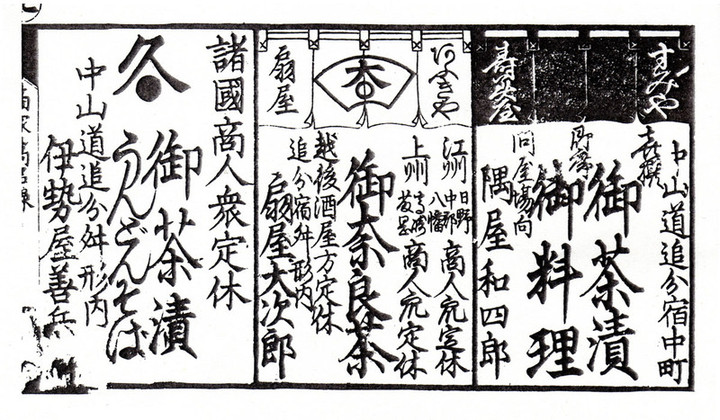 すみや
寿美屋
中山道追分宿中町
喜撰
御茶漬
即席
御料理
問屋場向
隅屋和四郎
あふきや
本
扇屋
江州 日野 中郡 八幡 商人衆定休
上州 商人衆定休
御奈良茶
越後酒屋方定休
追分宿舛形内
扇屋大次郎
諸國商人衆定休
久
御茶漬
うんどんそば
中山道追分舛形内
伊勢屋善兵